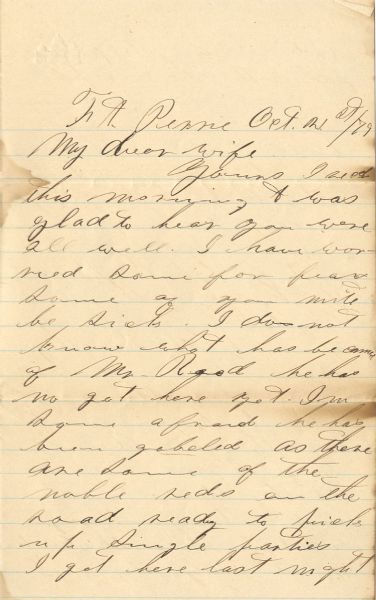 Ft. Pierre Oct. 21st/79
My dear wife
Yours I recd
this morning & was
glad to hear you were
all well. I have wor
ried some for fear
some of you mite
be sick. I does not
know what has became
of Mr. Reed he has
no got here yet. I'm
some afraid he has
been gobeled as there
are some of the
noble reds on the
road ready to pick
up single parties
I got here last night